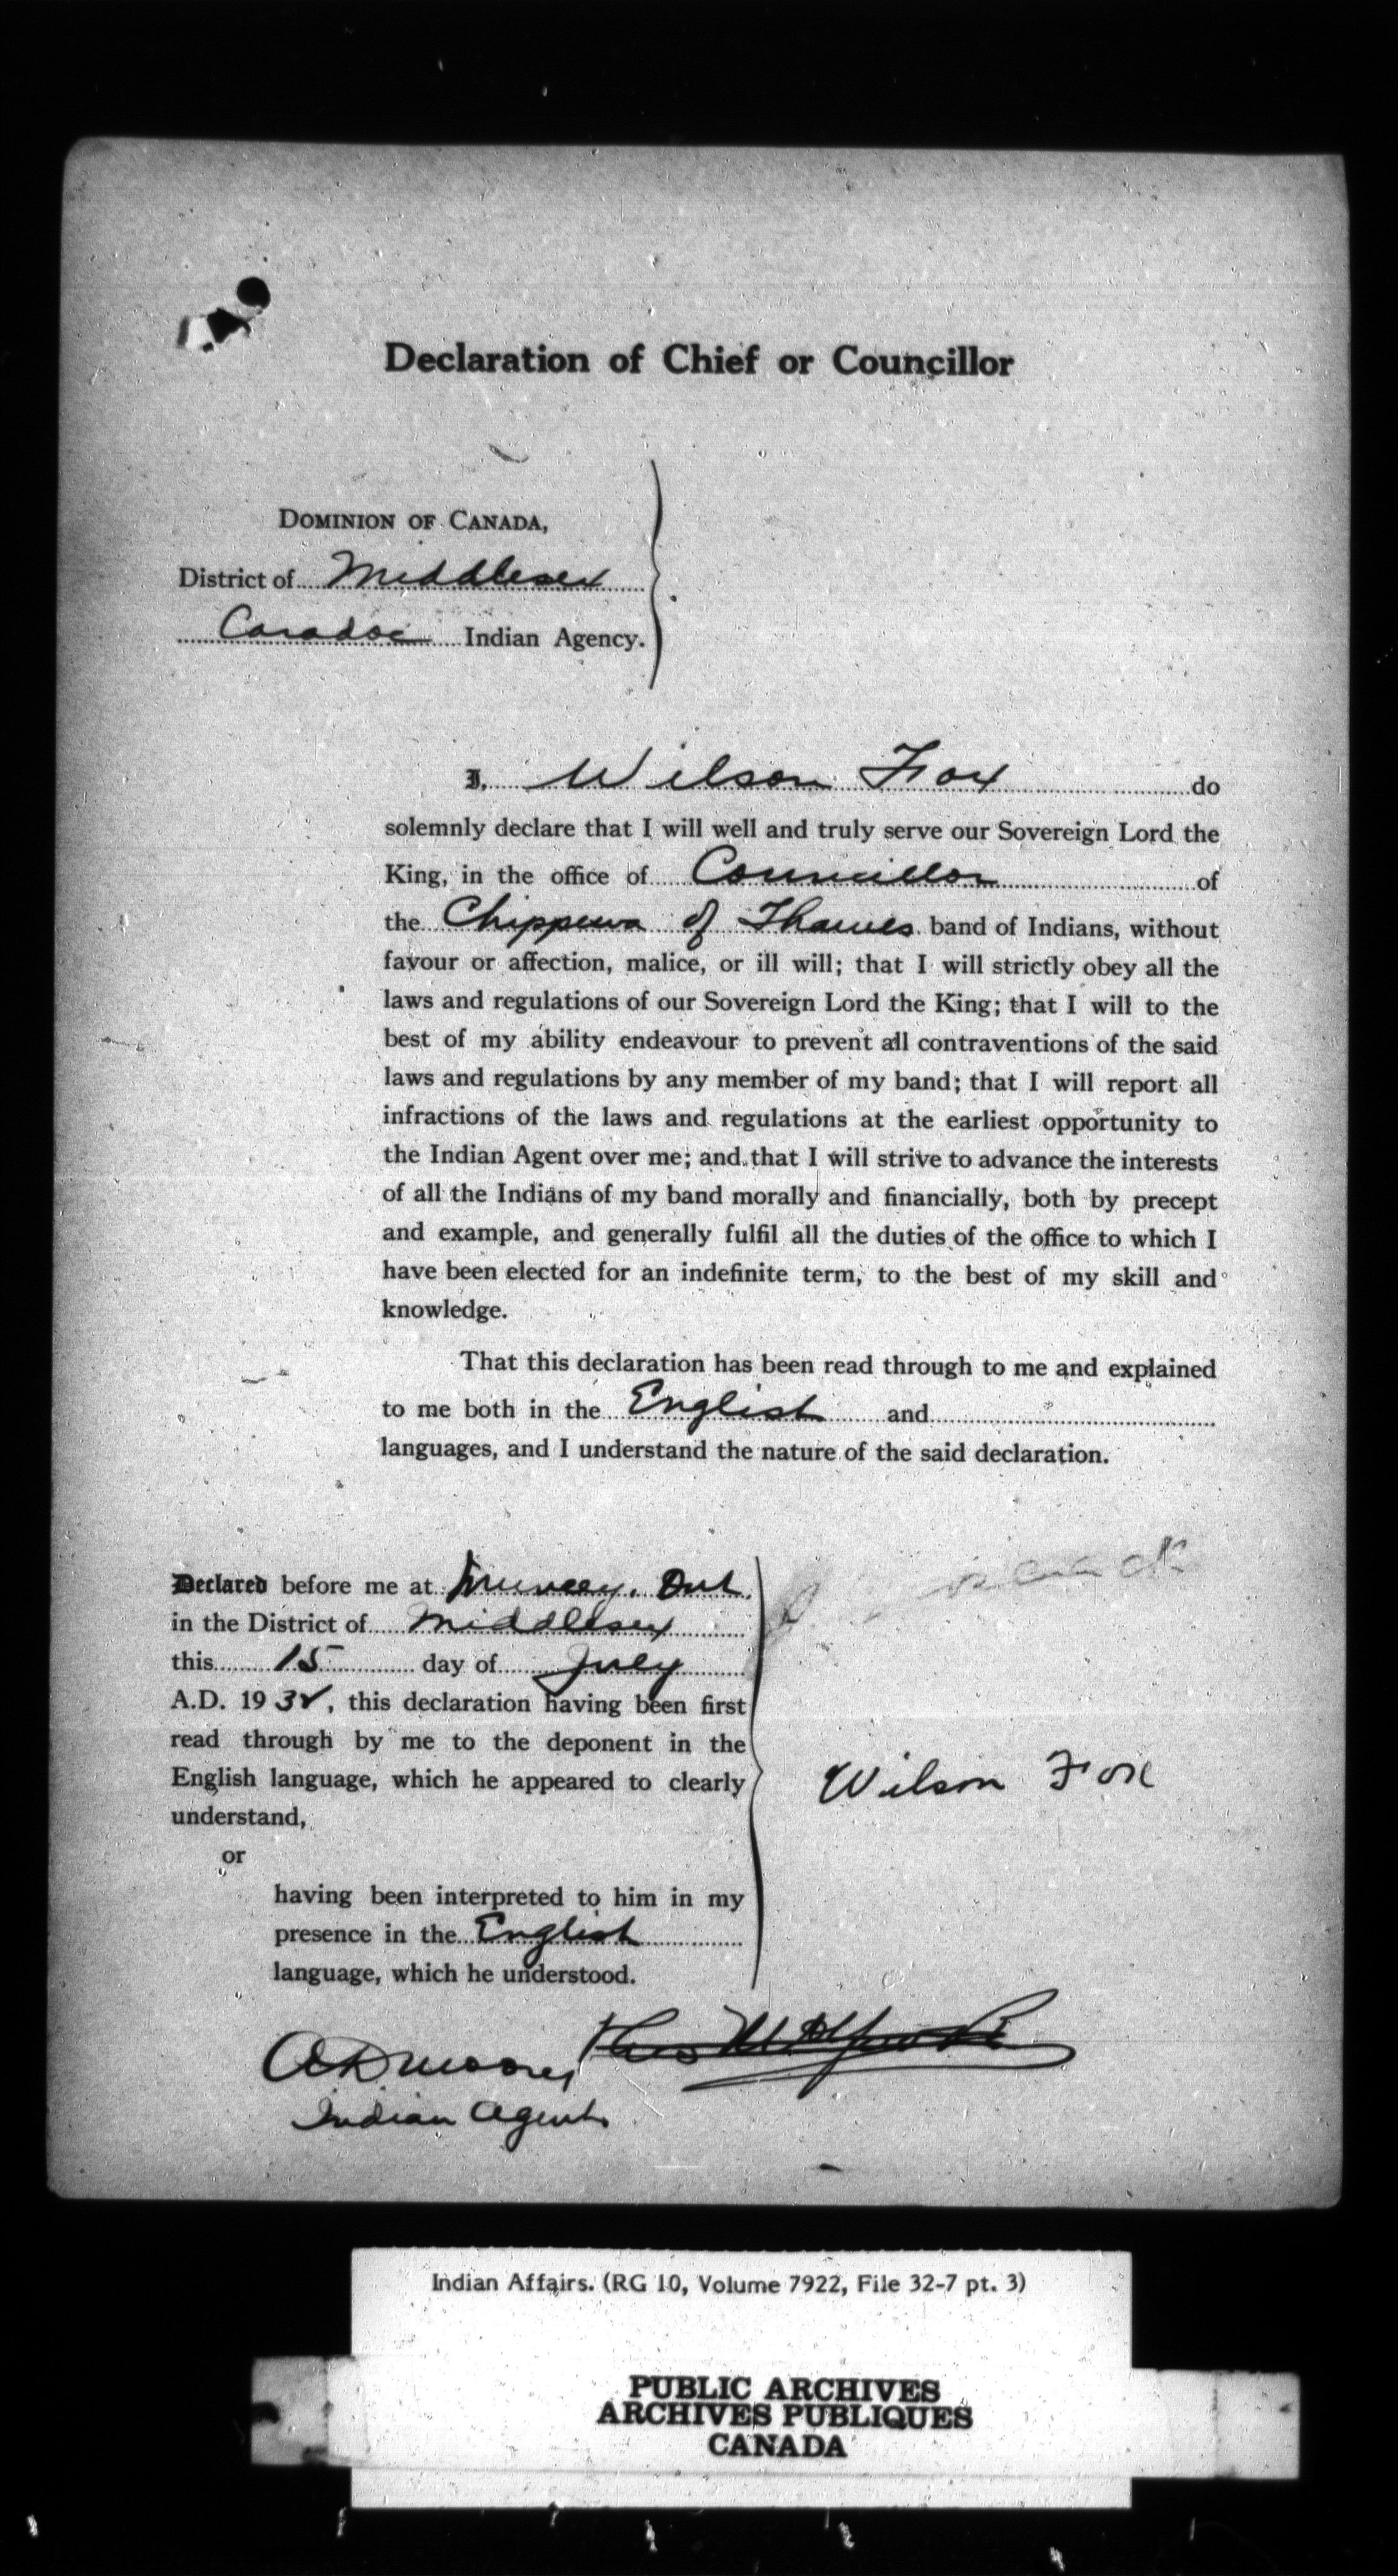 Declaration of Chief or Councillor
DOMINION OF CANADA,
District of Middlesex
Caradoc Indian Agency.
I, Wilson Fox do
solemnly declare that I will well and truly serve our Sovereign Lord the
King, in the office of Councillor of
the Chippewa of Thames band of Indians, without
favour or affection, malice, or ill will; that I will strictly obey all the
laws and regulations of our Sovereign Lord the King; that I will to the
best of my ability endeavour to prevent all contraventions of the said
laws and regulations by any member of my band; that I will report all
infractions of the laws and regulations at the earliest opportunity to
the Indian Agent over me; and that I will strive to advance the interests
of all the Indians of my band morally and financially, both by precept
and example, and generally fulfil all the duties of the office to which I
have been elected for an indefinite term, to the best of my skill and
knowledge.
That this declaration has been read through to me and explained
to me both in the English and
languages, and I understand the nature of the said declaration.
Declared before me at Muncey. Ont.
in the District of Middlesex
this 15 day of July
A.D. 1932, this declaration having been first
read through by me to the deponent in the
English language, which he appeared to clearly
understand,
Wilson Fox
or
having been interpreted to him in my
presence in the English
language, which he understood.
A D Moore,
Indian Agent.
Indian Affairs. (RG 10, Volume 7922, File 32-7 pt. 3)
PUBLIC ARCHIVES
ARCHIVES PUBLIQUES
CANADA